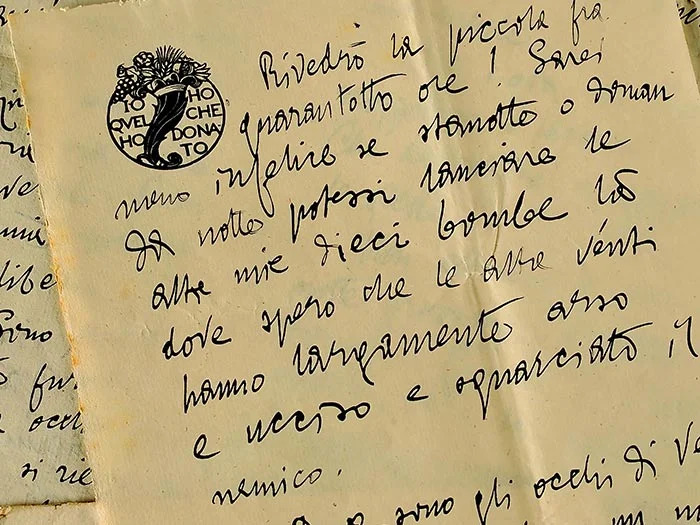 IO HO
QVEL CHE
HO DONA
TO
Rivedrò la piccola fra
quarantotto ore! Sarei
meno infelice se stanotte o doman
da notte potessi lanciare le
altre mie dieci bombe là
dove spero che le altre vénti
hanno largamente arso
e ucciso e squarciato il
nemico.
sono gli occhi di